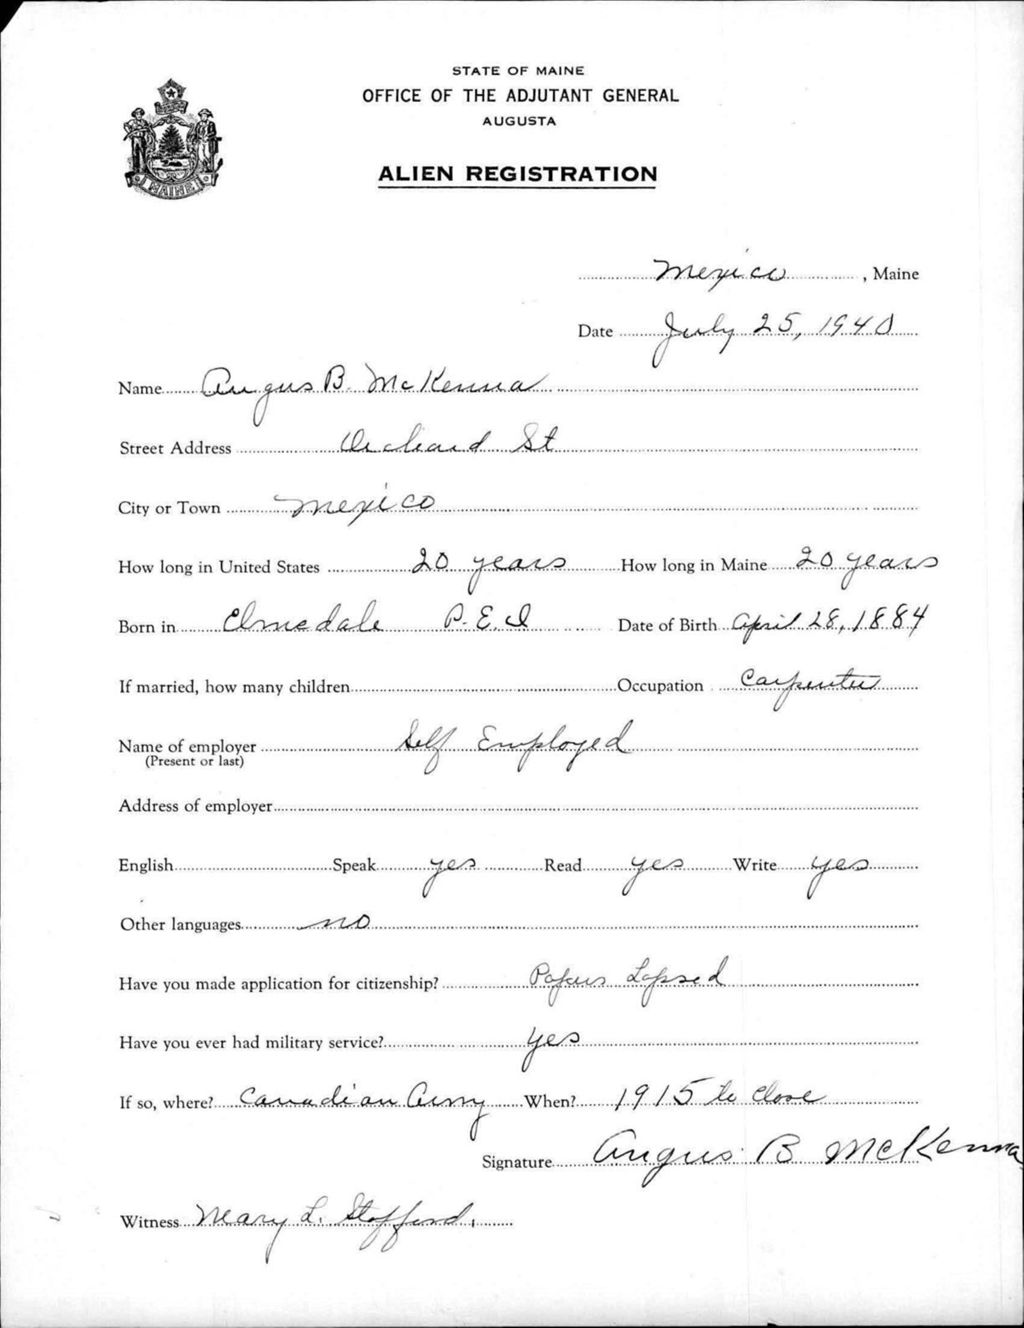 STATE OF MAINE
OFFICE OF THE ADJUTANT GENERAL
AUGUSTA
ALIEN REGISTRATION
MAINE
Mexico, Maine
Date July 25, 1940
Name Angus B. McKenna
Street Address Orchard St
City or Town Mexico
How long in United States 20 years How long in Maine 20 years
Born in Elmsdale P.E.I Date of Birth April 28, 1884
If married, how many children Occupation Carpenter
Name of employer Self Employed
(Present or last)
Address of employer
English Speak yes Read yes Write yes
Other languages no
Have you made application for citizenship? Papers Lapsed
Have you ever had military service? yes
If so, where? Canadian Army When? 1915 to Close
Signature Angus B McKenna
Witness Mary L. Stafford